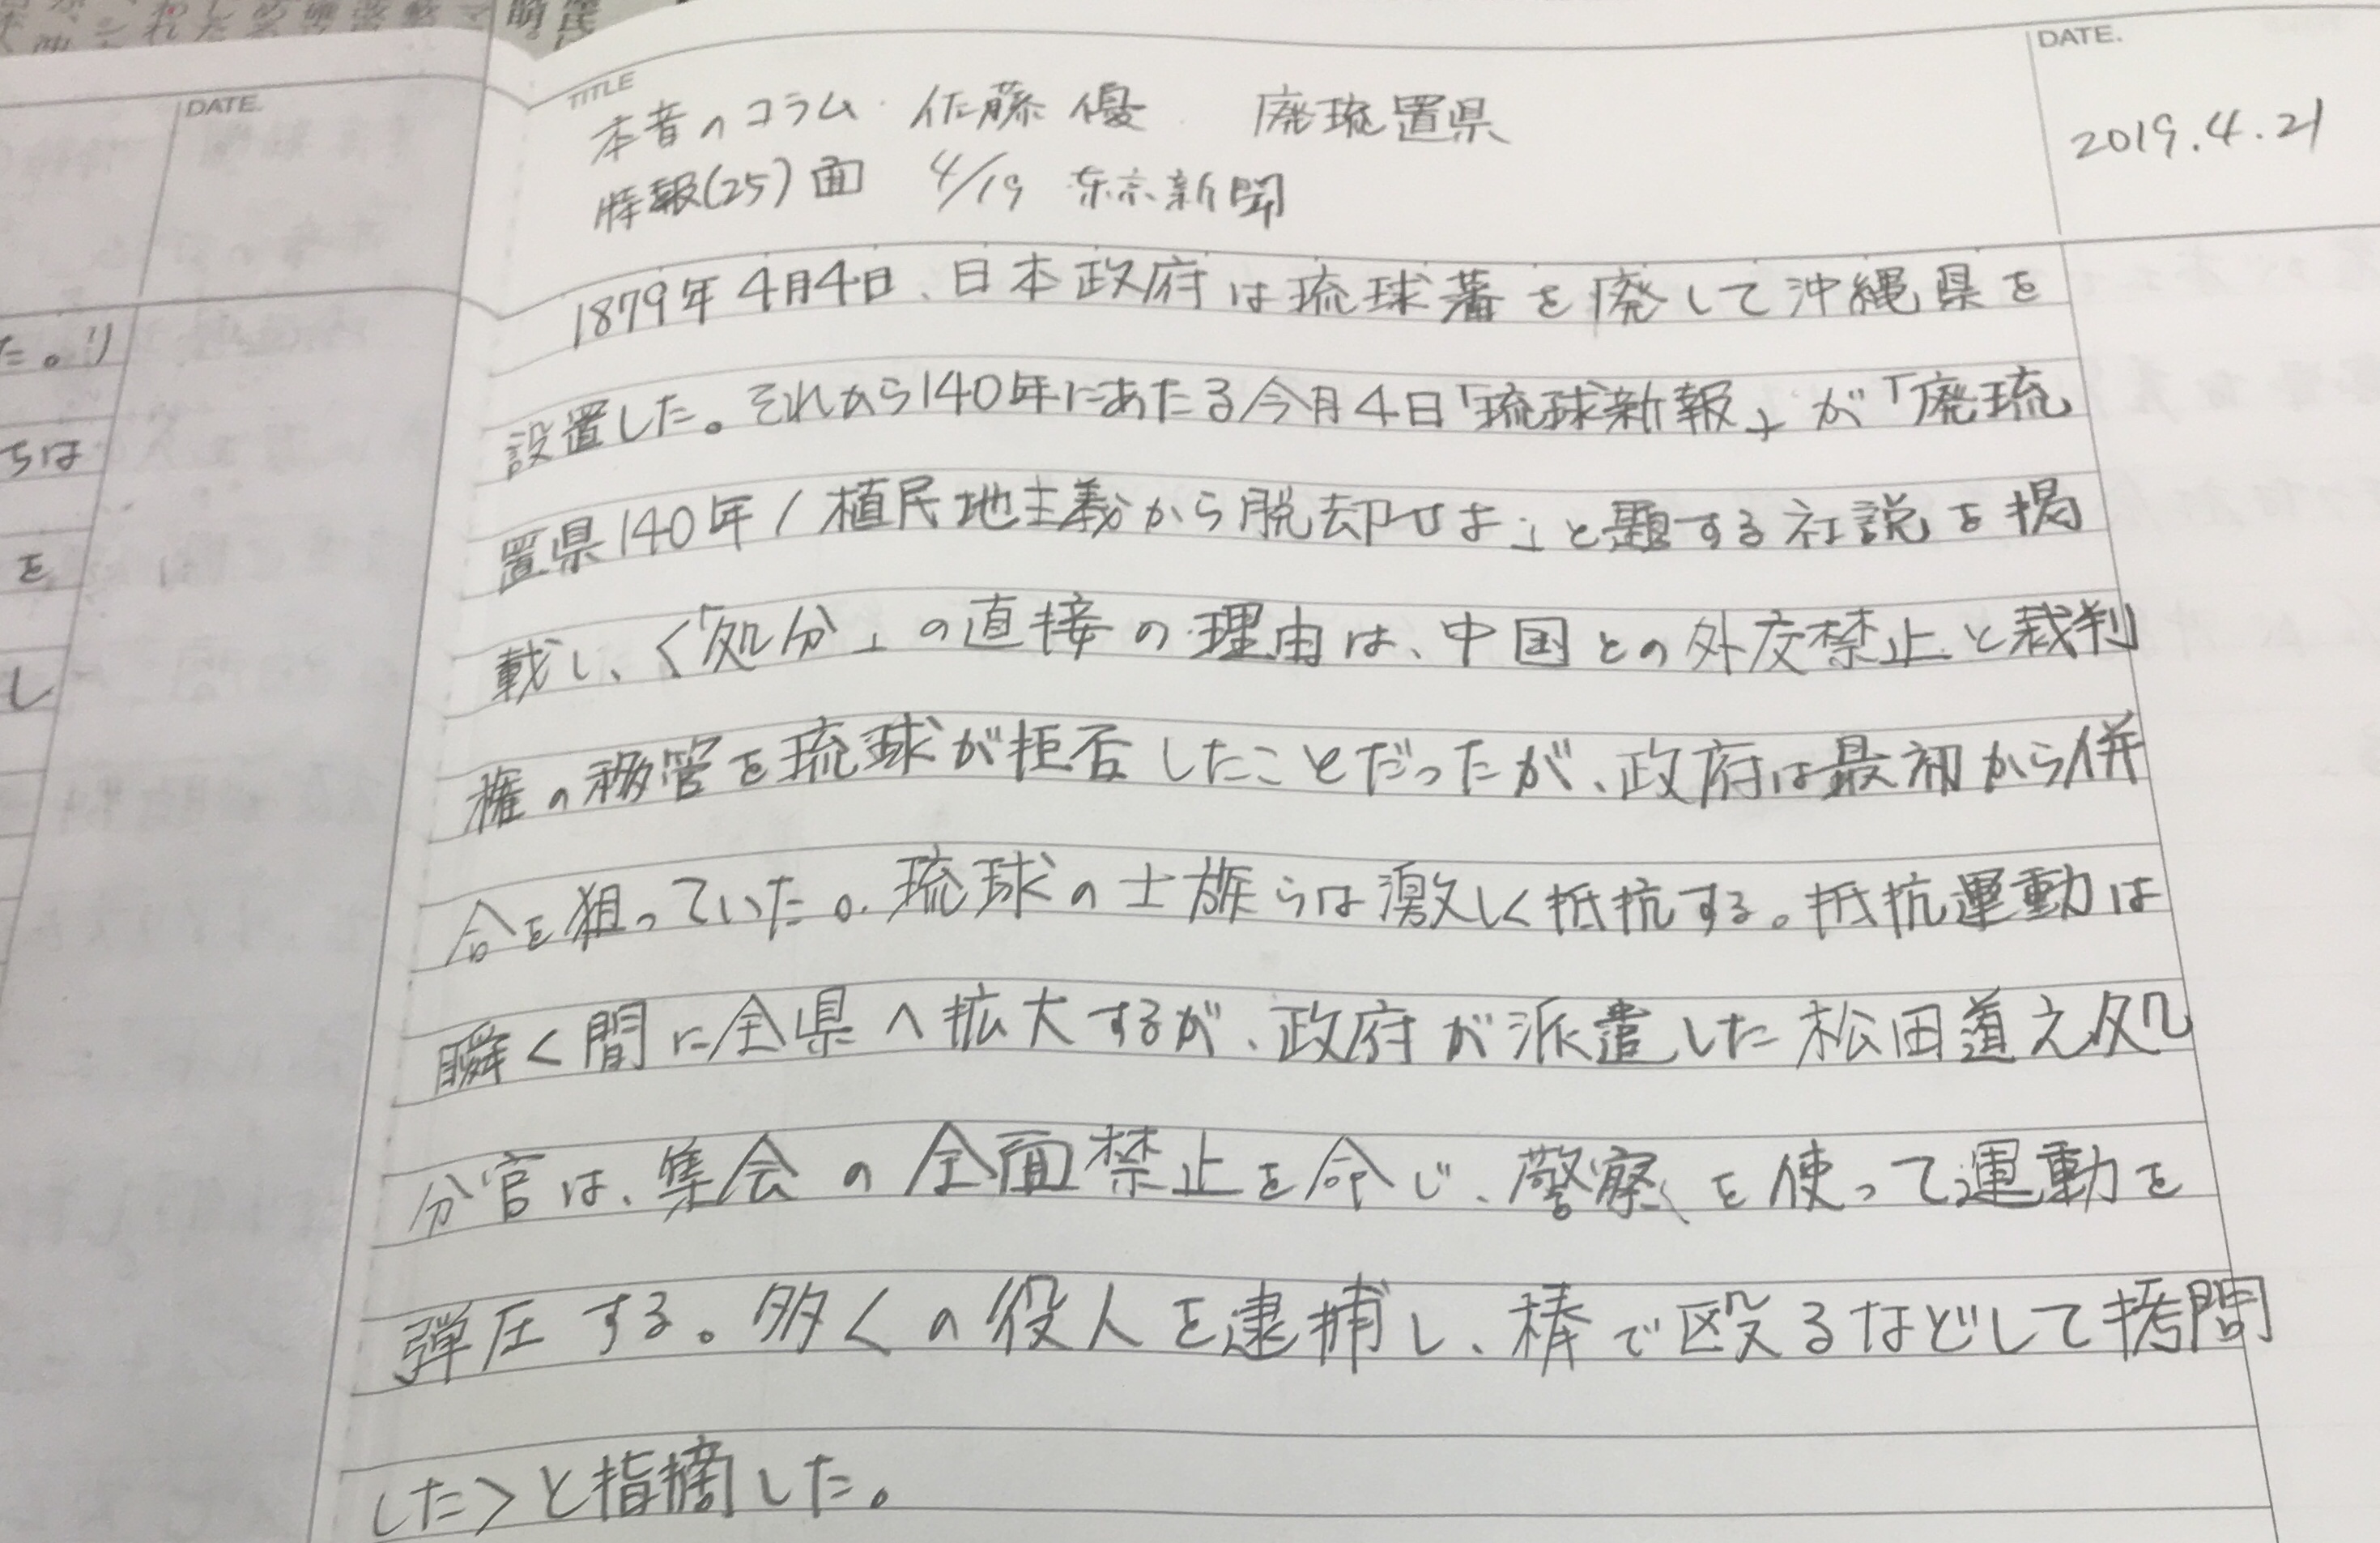 TITLE
本音のコラム 佐藤優 廃琉置県
情報(25)面 4/19 東京新聞
DATE.
2019.4.21
1879年4月4日、日本政府は琉球藩を廃して沖縄県を
設置した。それから140年にあたる今月4日「琉球新報」が「廃琉
置県140年/植民地主義から脱却せよ」と題する社説を掲
載し、<「処分」の直接の理由は、中国との外交禁止と裁判
権の移管を琉球が拒否したことだったが、政府は最初から併
合を狙っていた。琉球の士族らは激しく抵抗する。抵抗運動は
瞬く間に全県へ拡大するが、政府が派遣した松田道之処
分官は、集会の全面禁止を命じ、警察を使って運動を
弾圧する。多くの役人を逮捕し、棒で殴るなどして拷問
した>と指摘した。
DATE.
た。り
ちは
を
し